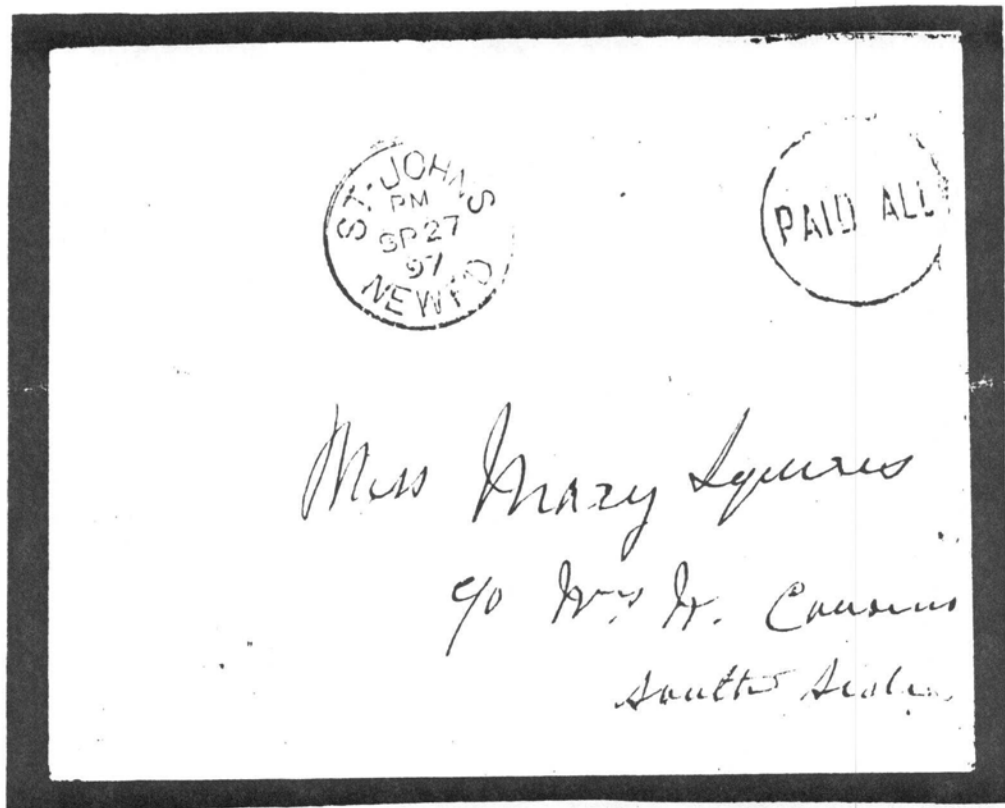 ST. JOHN'S
PM
SP 27
97
NEWFD
PAID ALL
Miss Mary Squires
c/o Mrs W. Cousins
South Side